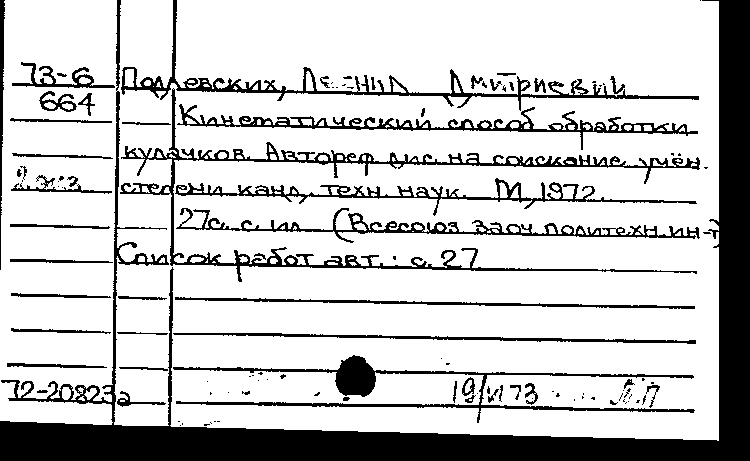 73-6 Подлевских, Леонид Дмитриевич
664 Кинематический способ обработки
кулачков. Автореф дис. на соискание учён.
2 экз степени канд. техн. наук. М., 1972.
27с. с ил (Всесоюз заоч политехн. ин-т)
Список работ авт.: с. 27
72-20823а 19/VI 73 Л.П